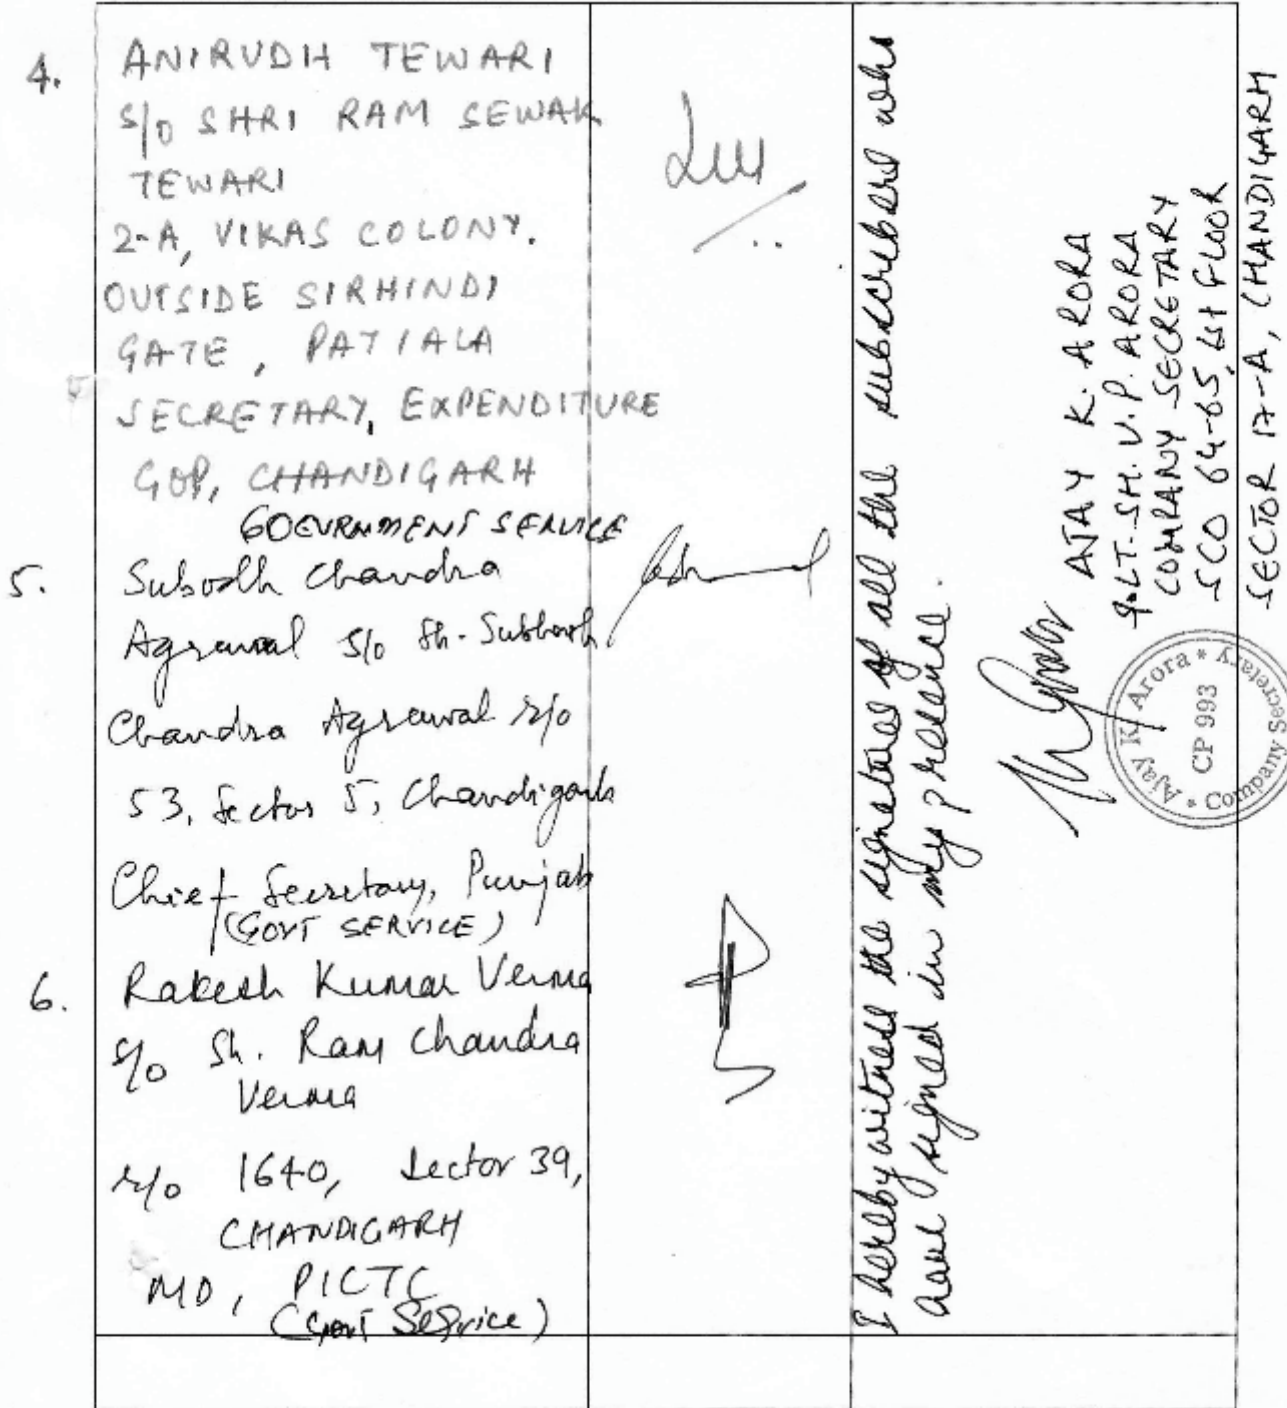 4. ANIRUDH TEWARI
S/O SHRI RAM SEWAK
TEWARI
2-A, VIKAS COLONY.
OUTSIDE SIRHINDI
GATE, PATIALA
SECRETARY, EXPENDITURE
GOP, CHANDIGARH
GOEVRNMENT SERVICE
5. Subodh Chandra
Agrawal S/o Sh. Subhash
Chandra Agrawal r/o
53, Sector 5, Chandigarh
Chief Secretary, Punjab
(GOVT SERVICE)
6. Rakesh Kumar Verma
S/o Sh. Ram Chandra
Verma
r/o 1640, Sector 39,
CHANDIGARH
MD, PICTC
(Govt Service)
I hereby witness the signatures of all the subscribers who
have signed in my presence.
AJAY K. ARORA
LT. SH. V.P. ARORA
COMPANY SECRETARY
SCO 64-65, 1st FLOOR
SECTOR 17-A, CHANDIGARH
Ajay K Arora * Company Secretary *
CP 993